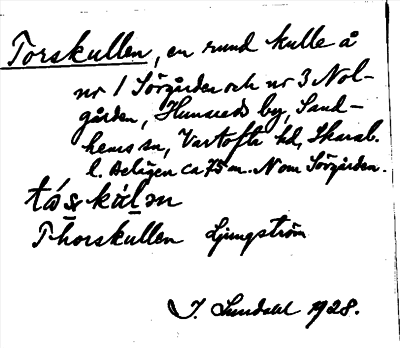 Torskullen, en rund kulle å
nr 1 Sörgården och nr 3 Nol-
gården, Hunsreds by, Sand-
hems sn, Vartofta hd, Skarab.
l. Belägen ca 75 m. N om Sörgården.
Thorskullen Ljungström
J. Sundahl 1928.